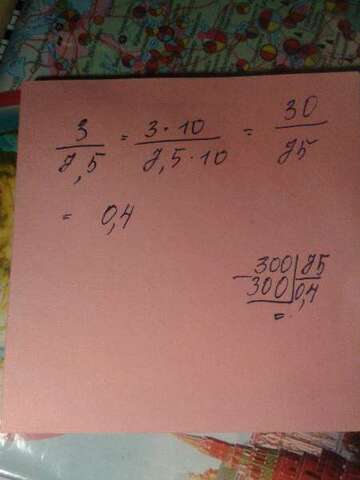 3/7,5 = 3·10/7,5·10 = 30/75
= 0,4
300 | 75
- 300 | 0,4
=